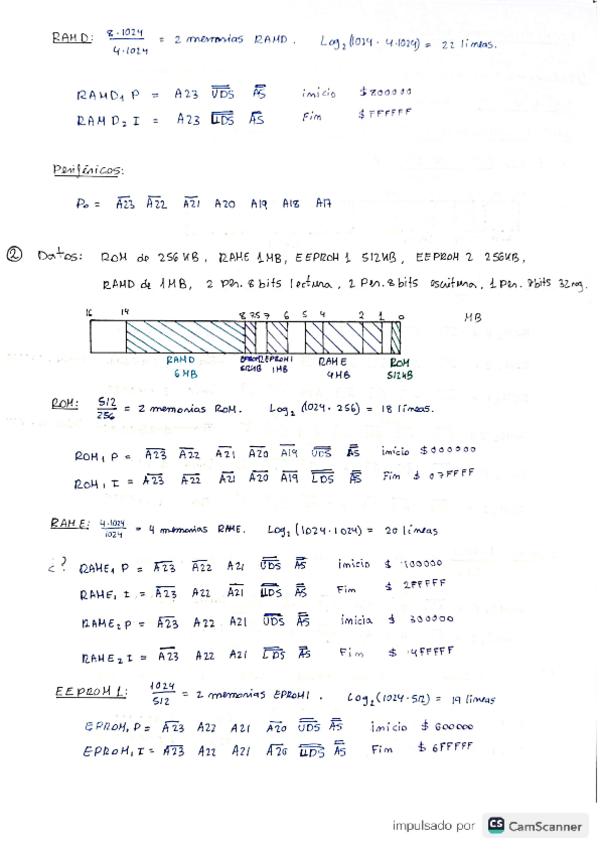 RAMD: 8·1024 / 4·1024 = 2 memorias RAMD. Log₂(1024·4·1024) = 22 lineas.
RAMD₁ P = A̅2̅3̅ U̅D̅S̅ A̅S̅ inicio $800000
RAMD₂ I = A23 L̅D̅S̅ A̅S̅ Fim $FFFFFF
Periféricos:
P₀ = A̅2̅3̅ A̅2̅2̅ A̅2̅1̅ A20 A19 A18 A17
② Datos: ROM de 256KB, RAME 1MB, EEPROM 1 512KB, EEPROM 2 256KB,
RAMD de 1MB, 2 Per. 8bits lectura, 2 Per. 8bits escritura, 1 Per. 8bits 32reg.
16 14 8 7.5 7 6 5 4 2 1 0 MB
RAMD EPROM2 EPROM1 RAME ROM
6MB 512KB 1MB 4MB 512KB
ROM: 512 / 256 = 2 memorias ROM. Log₂(1024·256) = 18 lineas.
ROM₁ P = A̅2̅3̅ A̅2̅2̅ A̅2̅1̅ A̅2̅0̅ A̅1̅9̅ U̅D̅S̅ A̅S̅ inicio $000000
ROM₁ I = A̅2̅3̅ A̅2̅2̅ A̅2̅1̅ A̅2̅0̅ A̅1̅9̅ L̅D̅S̅ A̅S̅ Fim $07FFFF
RAME: 4·1024 / 1024 = 4 memorias RAME. Log₂(1024·1024) = 20 lineas
¿? RAME₁ P = A̅2̅3̅ A̅2̅2̅ A21 U̅D̅S̅ A̅S̅ inicio $100000
RAME₁ I = A̅2̅3̅ A̅2̅2̅ A̅2̅1̅ L̅D̅S̅ A̅S̅ Fim $2FFFFF
RAME₂ P = A̅2̅3̅ A22 A21 U̅D̅S̅ A̅S̅ inicia $300000
RAME₂ I = A̅2̅3̅ A22 A21 L̅D̅S̅ A̅S̅ Fim $4FFFFF
EEPROM 1: 1024 / 512 = 2 memorias EPROM1. Log₂(1024·512) = 19 lineas
EPROM₁ P = A̅2̅3̅ A22 A21 A̅2̅0̅ U̅D̅S̅ A̅S̅ inicio $600000
EPROM₁ I = A̅2̅3̅ A22 A21 A̅2̅0̅ L̅D̅S̅ A̅S̅ Fim $6FFFFF
impulsado por CS CamScanner